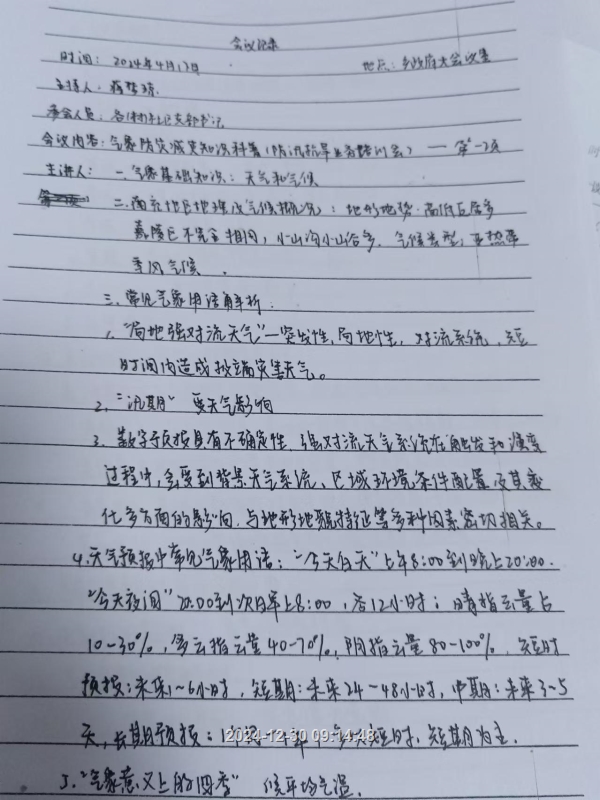 会议记录
时间：2024年4月17日 地点：乡政府大会议室
主持人：
参会人员：各村社区支部书记
会议内容：气象防灾减灾知识科普（防汛抗旱业务培训会）——第一项
主讲人：一.气象基础知识：天气和气候
二.南充地区地理及气候概况：地形地势：高低丘居多
嘉陵区不完全相同，小山沟小山谷多.气候类型：亚热带
季风气候.
三.常见气象用语解析：
1."局地强对流天气"—突发性,局地性，对流系统，短
时间内造成极端灾害天气。
2."汛期"受天气影响
3.数字预报具有不确定性，强对流天气系统在触发和演变
过程中,会受到背景天气系统、区域环境条件配置及其变
化多方面的影响,与地形地貌特征等多种因素密切相关。
4.天气预报中常见气象用语："今天白天"上午8:00到晚上20:00.
"今天夜间"20:00到次日早上8:00,各12小时；晴指云量占
10-30%,多云指云量40-70%,阴指云量80-100%.短时
预报：未来1~6小时,短期：未来24~48小时,中期：未来3~5
天,长期预报：短时,短期为主.
2024-12-30 09:14:48
5."气象意义上的四季"候平均气温.